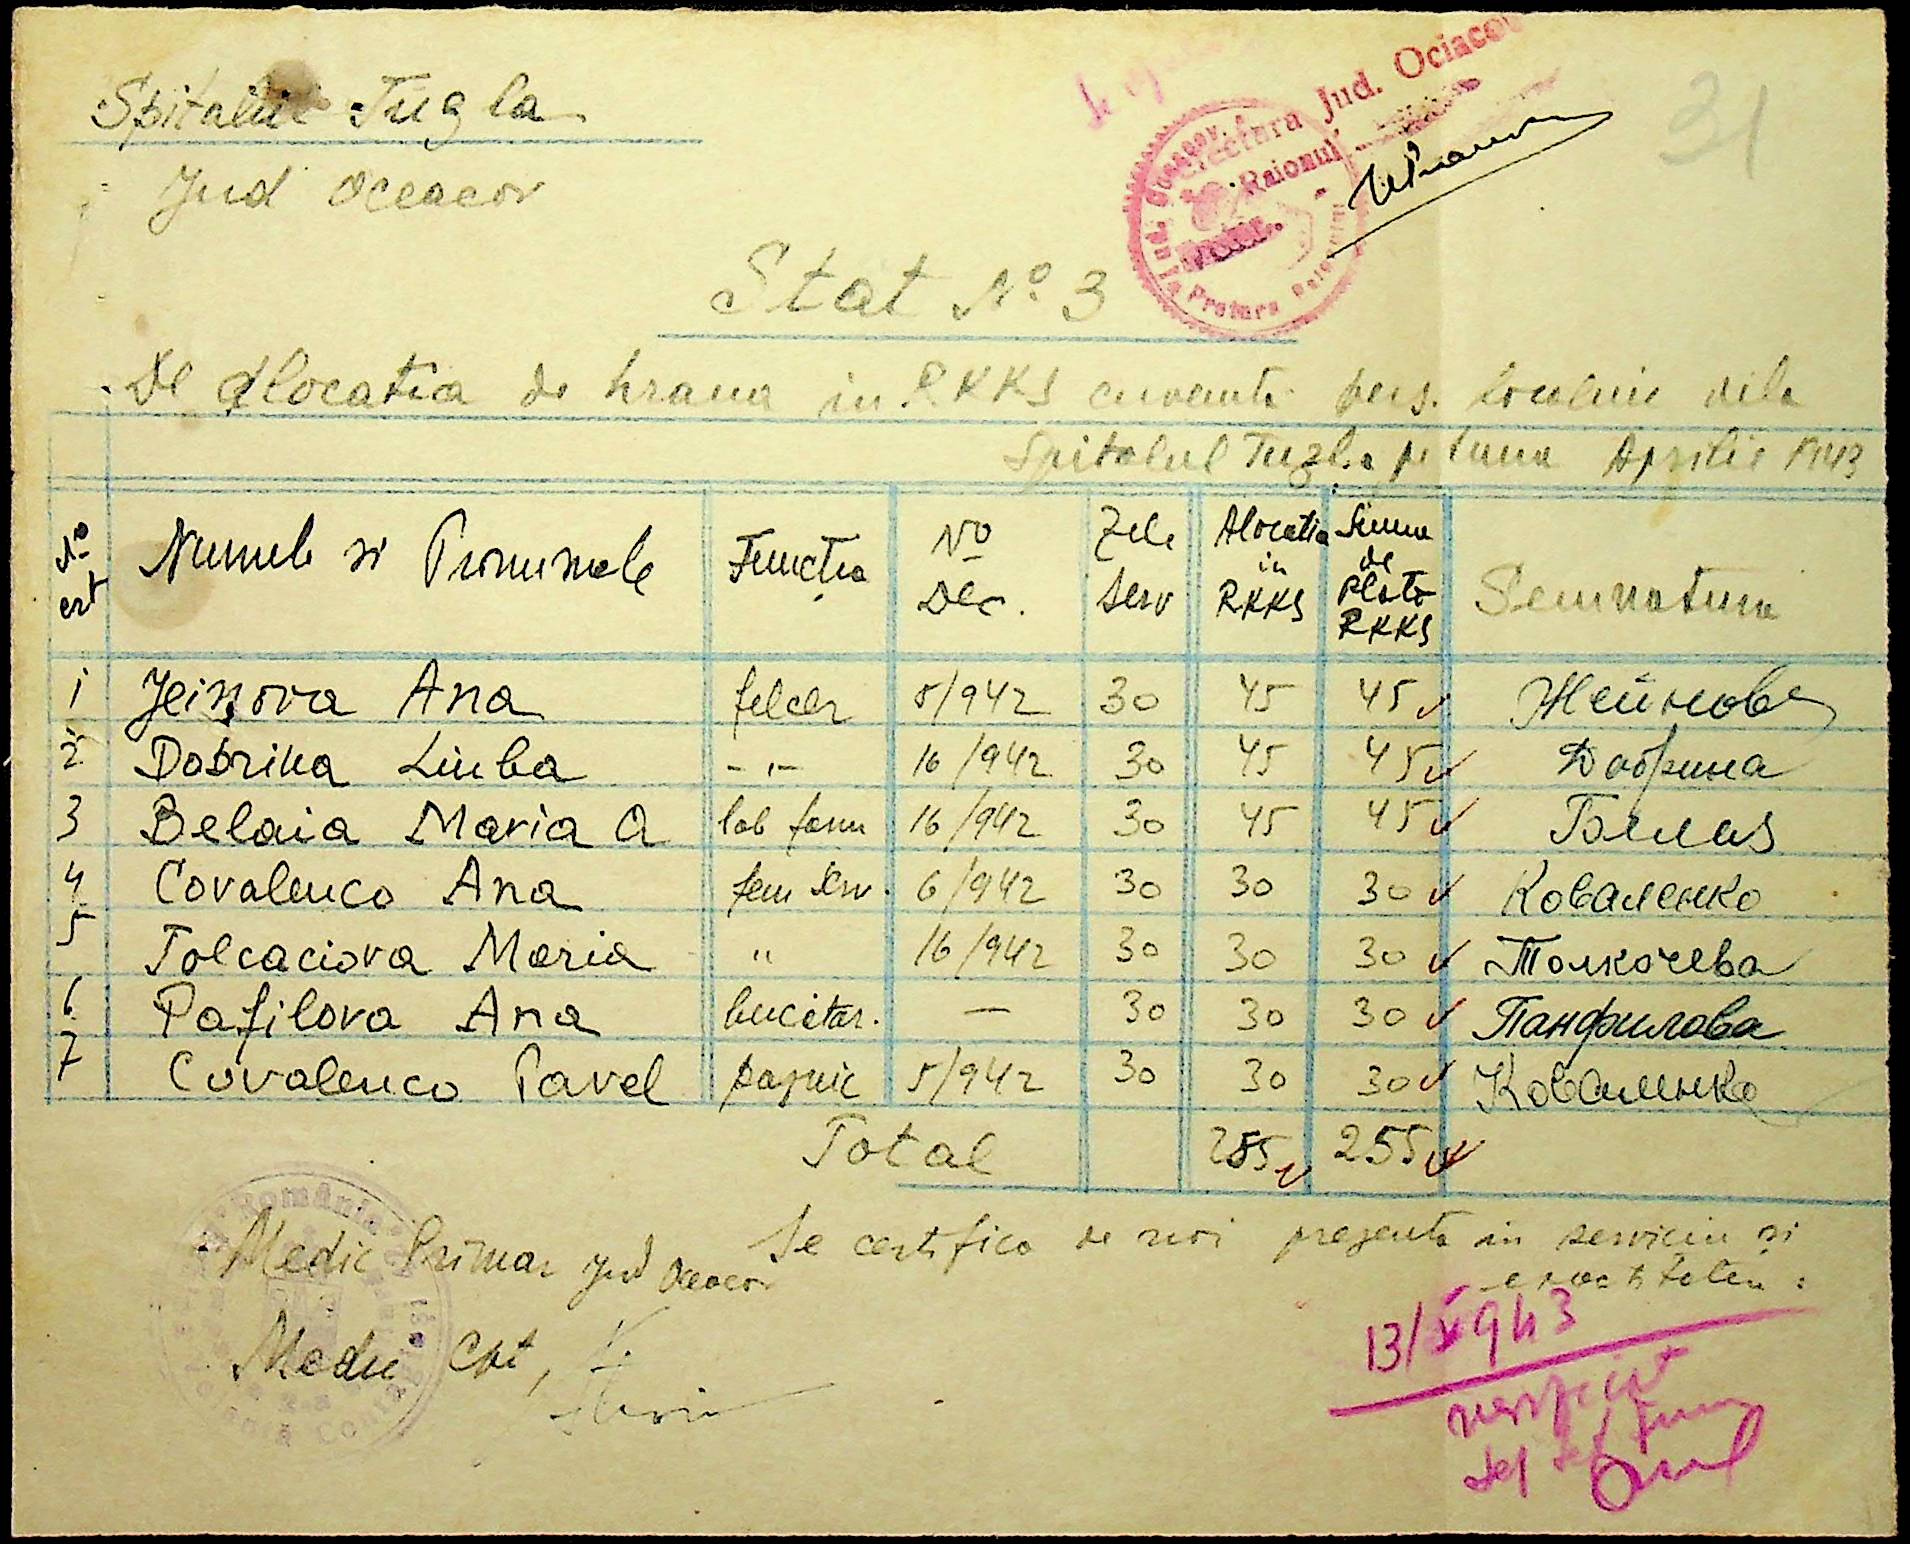 Spitalul Tuzla
Jud Oceacov
31
Jud. Ociacov
Raionul
Stat No 3
De alocatia de hrana in RKKS cuvenita pers. localnic dela
Spitalul Tuzla pe luna Aprilie 1943
No crt Numele si Pronumele Functia No Dec. Zile serv Alocatia in RKKS Suma de plata RKKS Semnatura
1 Jeinova Ana felcer 5/942 30 45 45 Жейнова
2 Dobrina Liuba -"- 16/942 30 45 45 Добрина
3 Belaia Maria A lab farm 16/942 30 45 45 Белая
4 Covalenco Ana fem serv. 6/942 30 30 30 Коваленко
5 Tolcaciova Maria " 16/942 30 30 30 Толкочева
6 Pafilova Ana bucătar. — 30 30 30 Панфилова
7 Covalenco Pavel paznic 5/942 30 30 30 Коваленко
Total 255 255
Medic Primar Jud Oceacov
Se certifica de noi prezenta in serviciu si
exactitatea:
Medic Cpt,
13/V 943
verificat